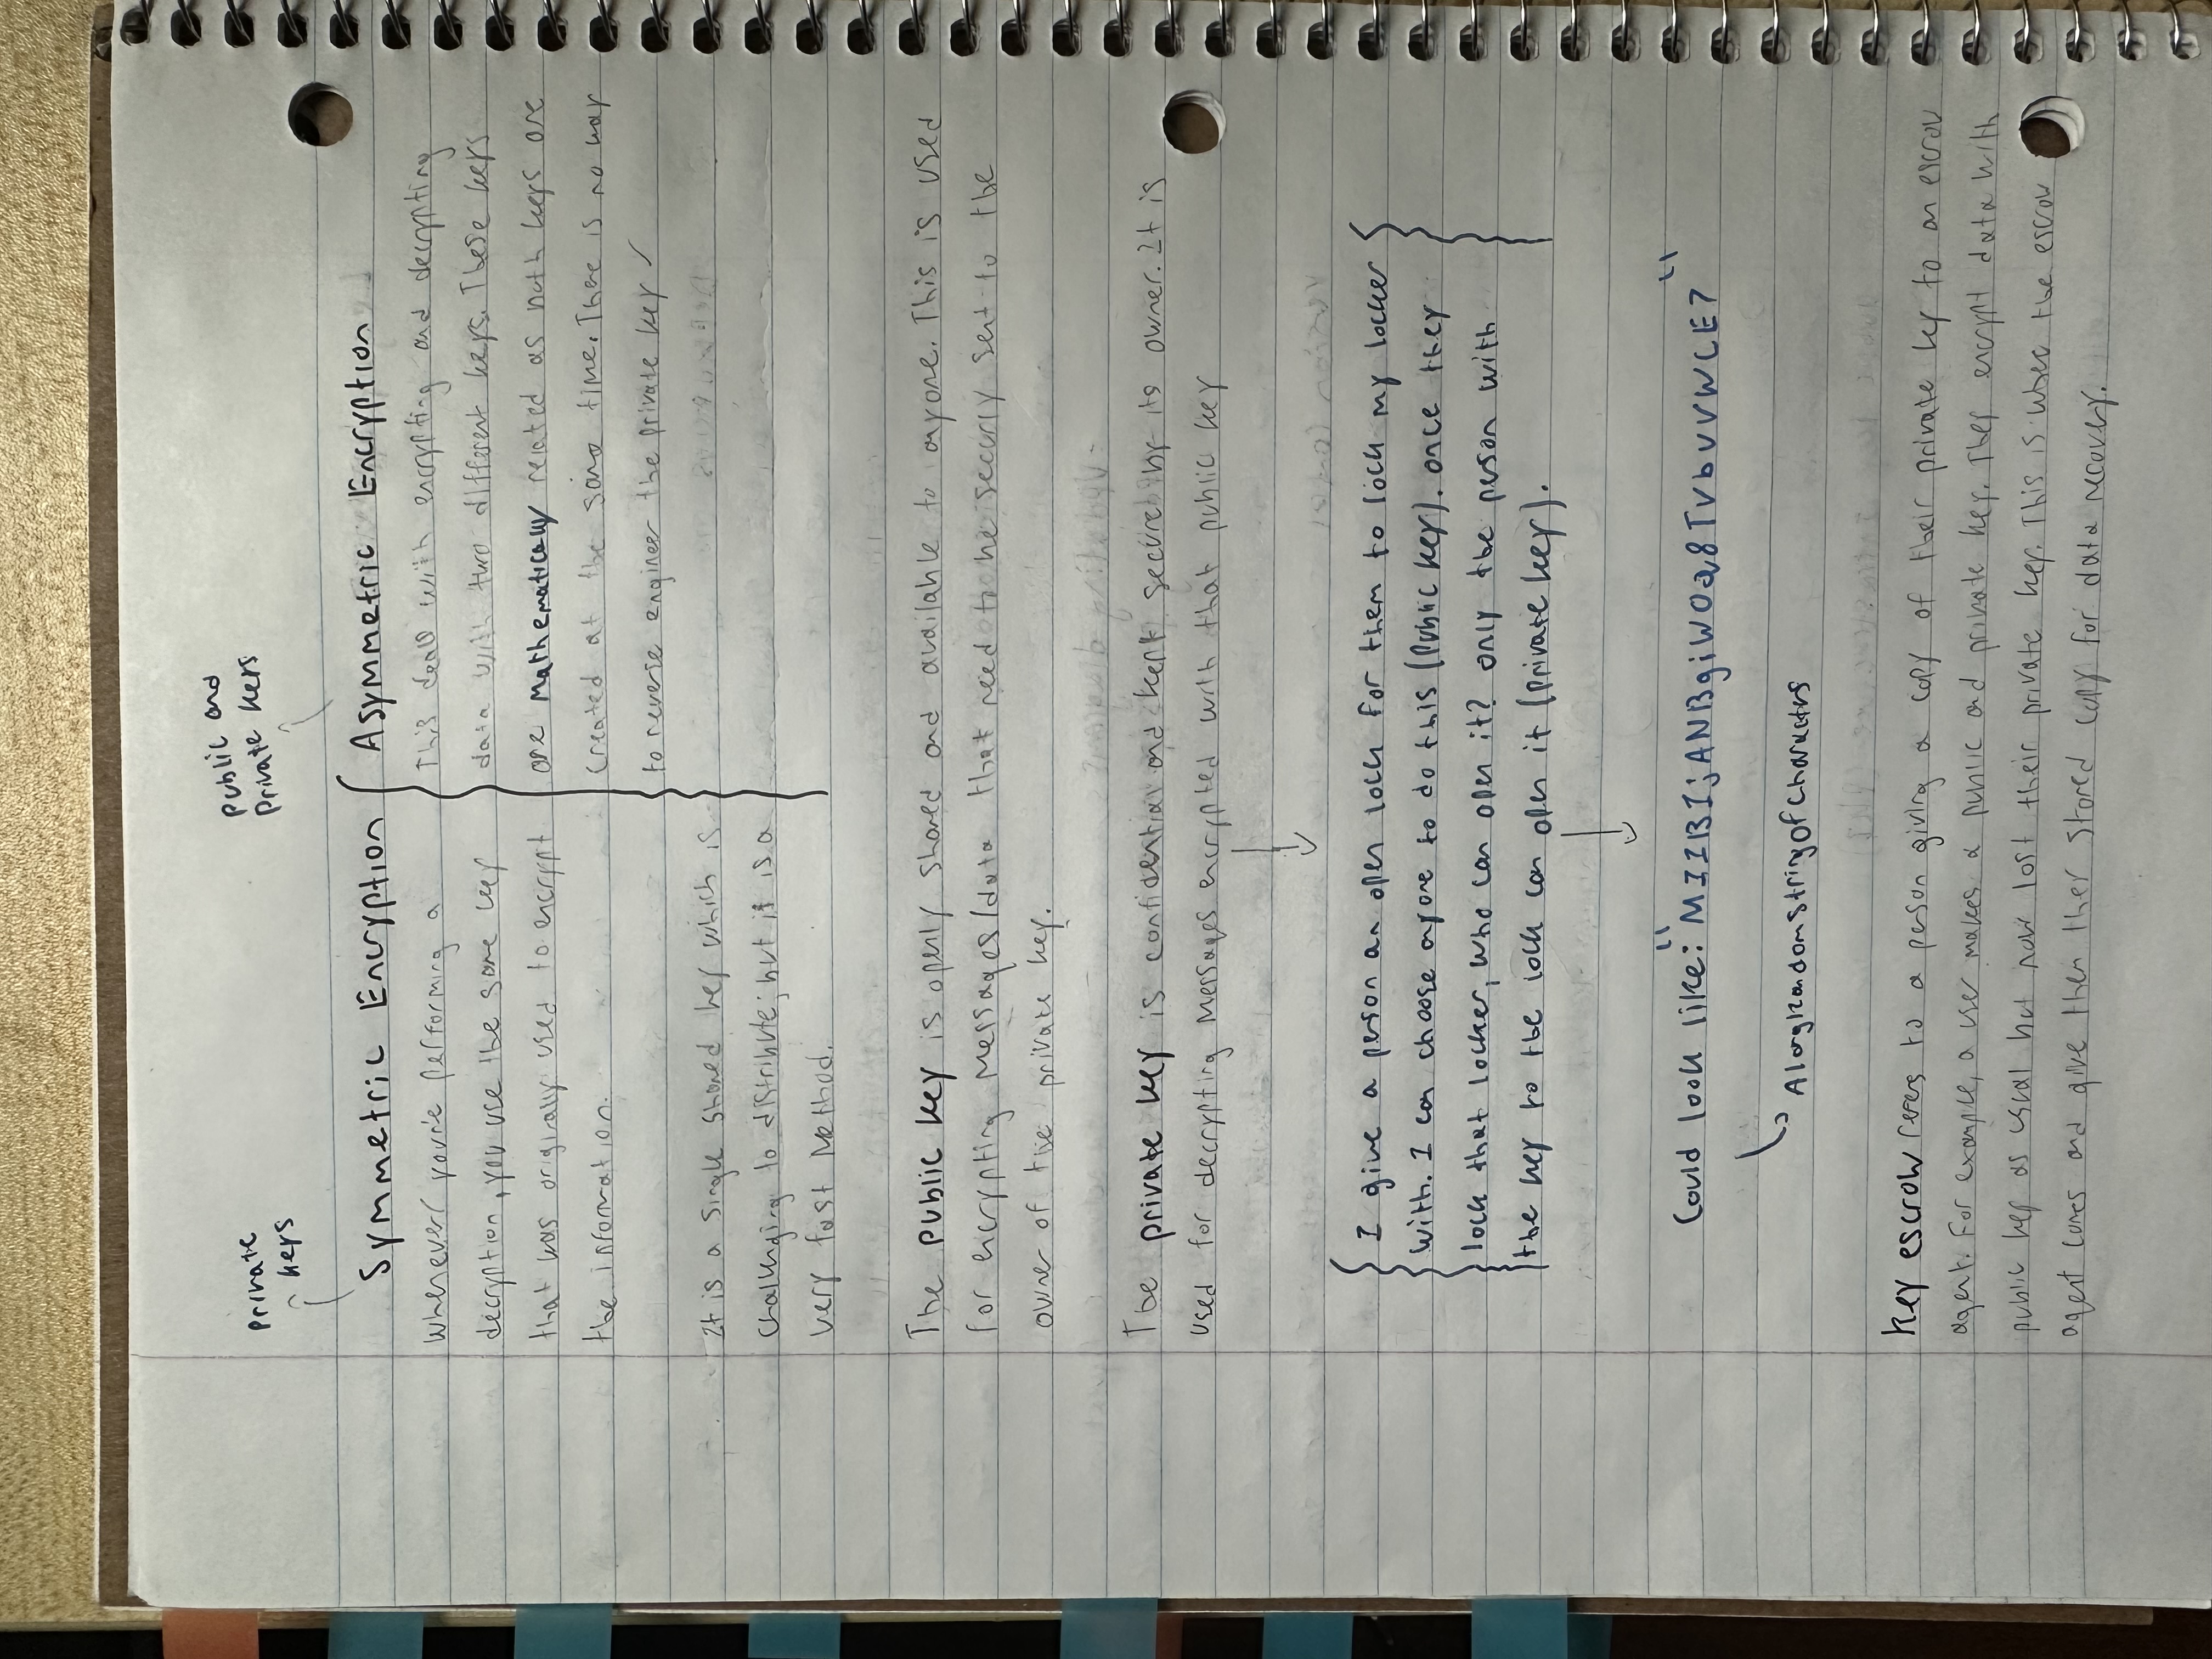 Private
Keys
Public and
Private Keys
Symmetric Encryption
Whenever you're performing a
decryption, you use the same key
that was originally used to encrypt
the information.
It is a single shared key which is
challenging to distribute; but it is a
very fast method.
Asymmetric Encryption
This deals with encrypting and decrypting
data with two different keys. These keys
are Mathematically related as both keys are
created at the same time. There is no way
to reverse engineer the private key
The public key is openly shared and available to anyone. This is used
for encrypting messages/data that need to be securly sent to the
owner of the private key.
The private key is confidential and kept secure by its owner. It is
used for decrypting messages encrypted with that public key
I give a person an open lock for them to lock my locker
with. I can choose anyone to do this (Public key). once they
lock that locker, who can open it? only the person with
the key to the lock can open it (private key).
Could look like: "MIIBIjANBgiWOq8TVbVVWCE7"
A long Random String Of Characters
Key escrow refers to a person giving a copy of their private key to an escrow
agent. For example, a user makes a public and private key. They encrypt data with
public key as usual but now lost their private key. This is when the escrow
agent comes and give them ther stored copy for data recovery.